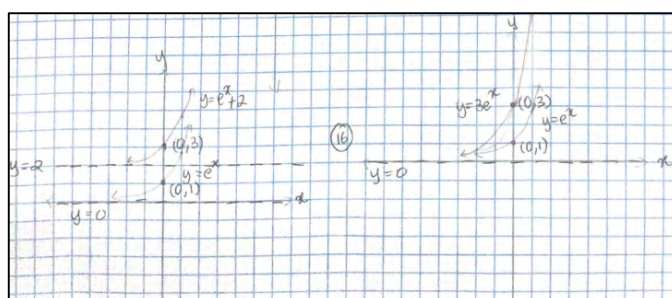 y
y=e^x+2
(0,3)
y=2
y=e^x
(0,1)
x
y=0
(16)
y
y=3e^x
(0,3)
y=e^x
(0,1)
x
y=0